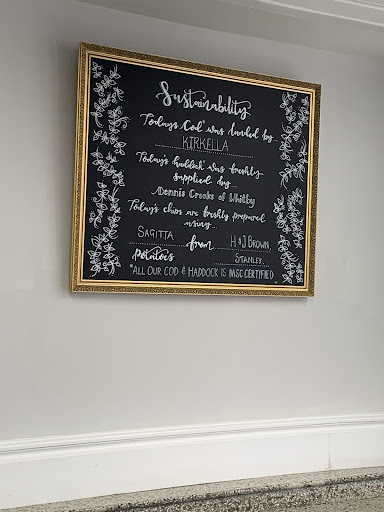 Sustainability
Today's Cod was landed by...
KIRKELLA
Today's haddock was freshly
supplied by...
Dennis Crooks of Whitby
Today's chips are freshly prepared
using...
SAGITTA from H & J BROWN,
potatoes STANLEY
*ALL OUR COD & HADDOCK IS MSC CERTIFIED